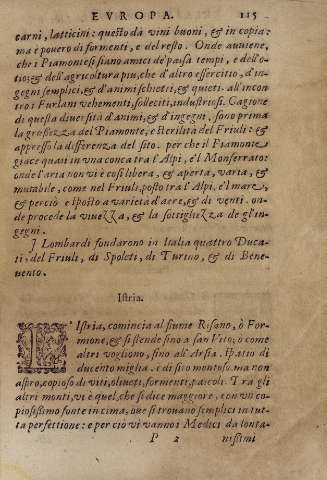 EVROPA. 115
carni, latticini: questo dà vini buoni, & in copia:
ma è pouero di formenti, e del resto. Onde auuiene,
che i Piamontesi siano amici de' passa tempi, e dell'o-
tio; & dell'agricoltura piu, che d'altro essercitio, d'in-
gegni semplici, & d'animi schietti, & quieti. all'incon
tro i Furlani vehementi, solleciti, industriosi. Cagione
di questa diuersità d'animi, & d'ingegni, sono prima
la grossezza del Piamonte, e sterilità del Friuli: &
appresso la differenza del sito. per che il Piamonte
giace quasi in vna conca tra l'Alpi, e'l Monferrato:
onde l'aria non vi è così libera, & aperta, varia, &
mutabile, come nel Friuli, posto tra l'Alpi, e'l mare,
& perciò esposto a varietà d'aere, & di venti. on-
de procede la viuezza, & la sottigliezza de gl'in-
gegni.
I Lombardi fondarono in Italia quattro Duca-
ti, del Friuli, di Spoleti, di Turino, & di Bene-
uento.
Istria.
L'Istria, comincia al fiume Risano, ò For-
mione, & si stende sino a san Vito; ò come
altri vogliono, sino all'Arsia. spatio di
ducento miglia. è di sito montoso, ma non
aspro, copioso di viti, oliueti, formenti, pascoli. Tra gli
altri monti, vi è quel, che si dice maggiore, con vn co-
piosissimo fonte in cima, oue si trouano semplici in tut-
ta perfettione: e per ciò vi vanno i Medici da lonta-
P 2 nissimi